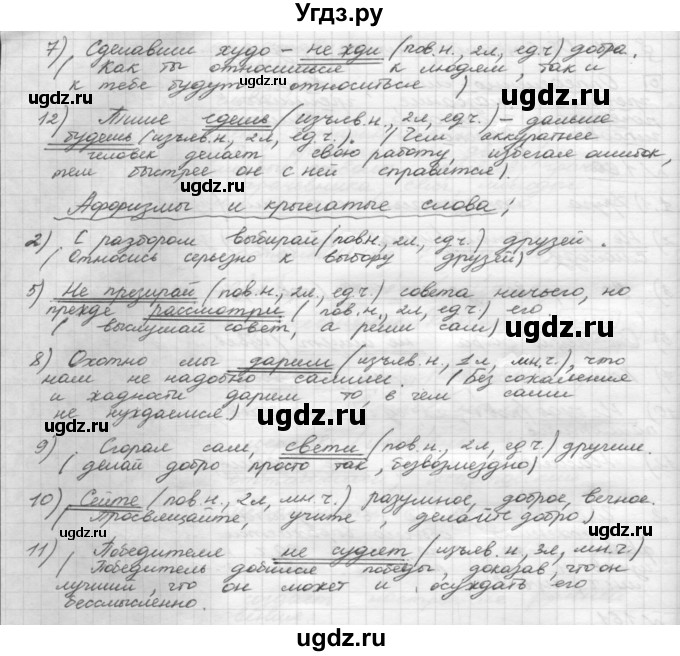 Угдз.ру
7) Сделавши худо - не жди (пов.н., 2л, ед.ч) добра.
( Как ты относишься к людям, так и
к тебе будут относиться )
12) Тише едешь (изъяв.н., 2л, ед.ч.) - дальше
будешь (изъяв.н., 2л, ед.ч.). (Чем аккуратнее
человек делает свою работу, избегая ошибок,
тем быстрее он с ней справится).
Афоризмы и крылатые слова:
2) С разбором выбирай (пов.н., 2л, ед.ч.) друзей.
( Относись серьезно к выбору друзей)
5) Не презирай (пов.н., 2л., ед.ч) совета ничьего, но
прежде рассмотри ( пов.н., 2л, ед.ч) его
( выслушай совет, а реши сам)
8) Охотно мы дарим (изъяв.н., 1л, мн.ч.), что
нам не надобно самим. ( Без сожаления
и жадности дарим то, в чем сами
не нуждаемся)
9) Сгорая сам, свети (пов.н., 2л, ед.ч.) другим.
( делай добро просто так, безвозмездно)
10) Сейте (пов.н., 2л, мн.ч.) разумное, доброе, вечное.
(Просвещайте, учите, делайте добро)
11) Победителя не судят (изъяв.н, 3л, мн.ч.)
( Победитель добился победы, доказав, что он
лучший, что он может и осуждать его
бессмысленно.
ugdz.ru
ugdz.ru
ugdz.ru
ugdz.ru
ugdz.ru
ugdz.ru
ugdz.ru
ugdz.ru
ugdz.ru
ugdz.ru
ugdz.ru
ugdz.ru
ugdz.ru
ugdz.ru